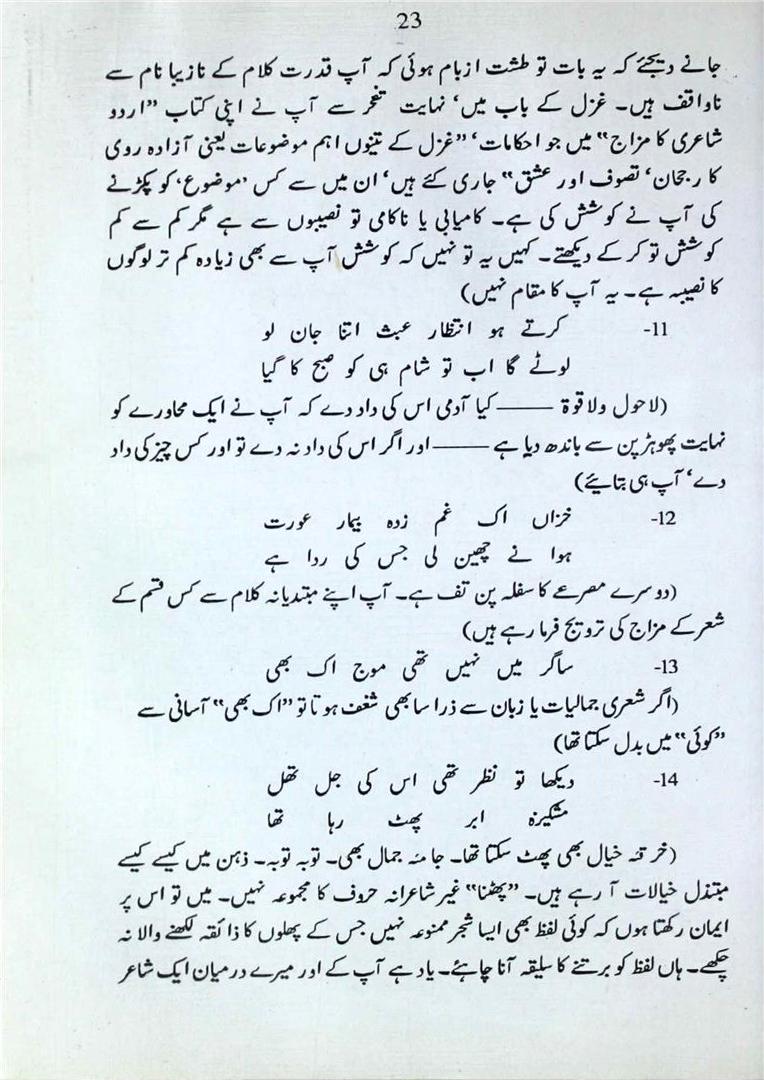 23
جانے دیجئے کہ یہ بات تو طشت ازبام ہوئی کہ آپ قدرت کلام کے نازیبا نام سے
ناواقف ہیں۔ غزل کے باب میں‘ نہایت تفخر سے آپ نے اپنی کتاب ”اردو
شاعری کا مزاج“ میں جو احکامات‘ ”غزل کے تینوں اہم موضوعات یعنی آزادہ روی
کا رجحان‘ تصوف اور عشق“ جاری کئے ہیں‘ ان میں سے کس ’موضوع‘ کو پکڑنے
کی آپ نے کوشش کی ہے۔ کامیابی یا ناکامی تو نصیبوں سے ہے مگر کم سے کم
کوشش تو کر کے دیکھتے۔ کہیں یہ تو نہیں کہ کوشش آپ سے بھی زیادہ کم تر لوگوں
کا نصیبہ ہے۔ یہ آپ کا مقام نہیں)
11- کرتے ہو انتظار عبث اتنا جان لو
لوٹے گا اب تو شام ہی کو صبح کا گیا
(لاحول ولا قوۃ ——— کیا آدمی اس کی داد دے کہ آپ نے ایک محاورے کو
نہایت پھوہڑپن سے باندھ دیا ہے ——— اور اگر اس کی داد نہ دے تو اور کس چیز کی داد
دے‘ آپ ہی بتایئے)
12- خزاں اک غم زدہ بیمار عورت
ہوا نے چھین لی جس کی ردا ہے
(دوسرے مصرعے کا سفلہ پن تف ہے۔ آپ اپنے مبتدیانہ کلام سے کس قسم کے
شعر کے مزاج کی ترویج فرما رہے ہیں)
13- ساگر میں نہیں تھی موج اک بھی
(اگر شعری جمالیات یا زبان سے ذرا سا بھی شغف ہوتا تو ”اک بھی“ آسانی سے
”کوئی“ میں بدل سکتا تھا)
14- دیکھا تو نظر تھی اس کی جل تھل
مشکیزہ ابر پھٹ رہا تھا
(خرقۂ خیال بھی پھٹ سکتا تھا۔ جامۂ جمال بھی۔ توبہ توبہ۔ ذہن میں کیسے کیسے
مبتذل خیالات آ رہے ہیں۔ ”پھٹنا“ غیر شاعرانہ حروف کا مجموعہ نہیں۔ میں تو اس پر
ایمان رکھتا ہوں کہ کوئی لفظ بھی ایسا شجر ممنوعہ نہیں جس کے پھلوں کا ذائقہ لکھنے والا نہ
چکھے۔ ہاں لفظ کو برتنے کا سلیقہ آنا چاہئے۔ یاد ہے آپ کے اور میرے درمیان ایک شاعر